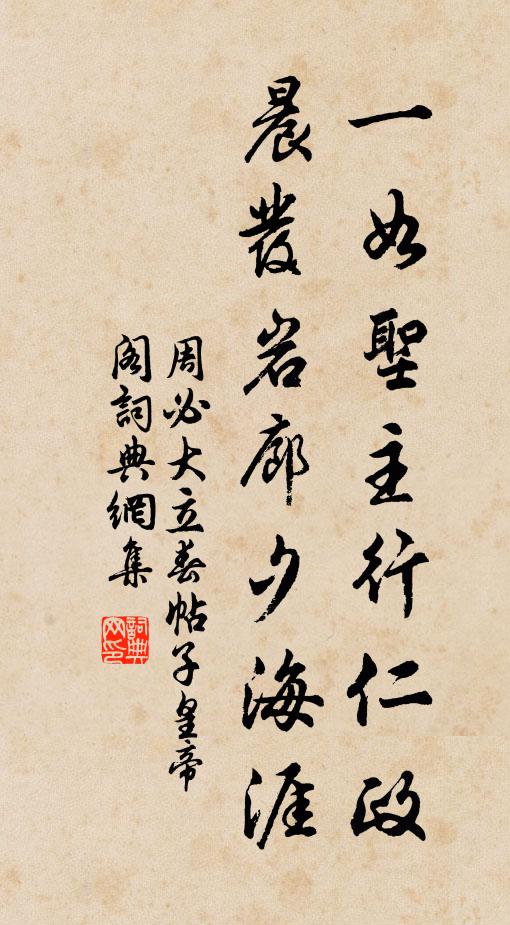 一如聖主行仁政
晨發岩廊夕海涯
周必大立春帖子皇帝
閣詞典網集
詞典網印